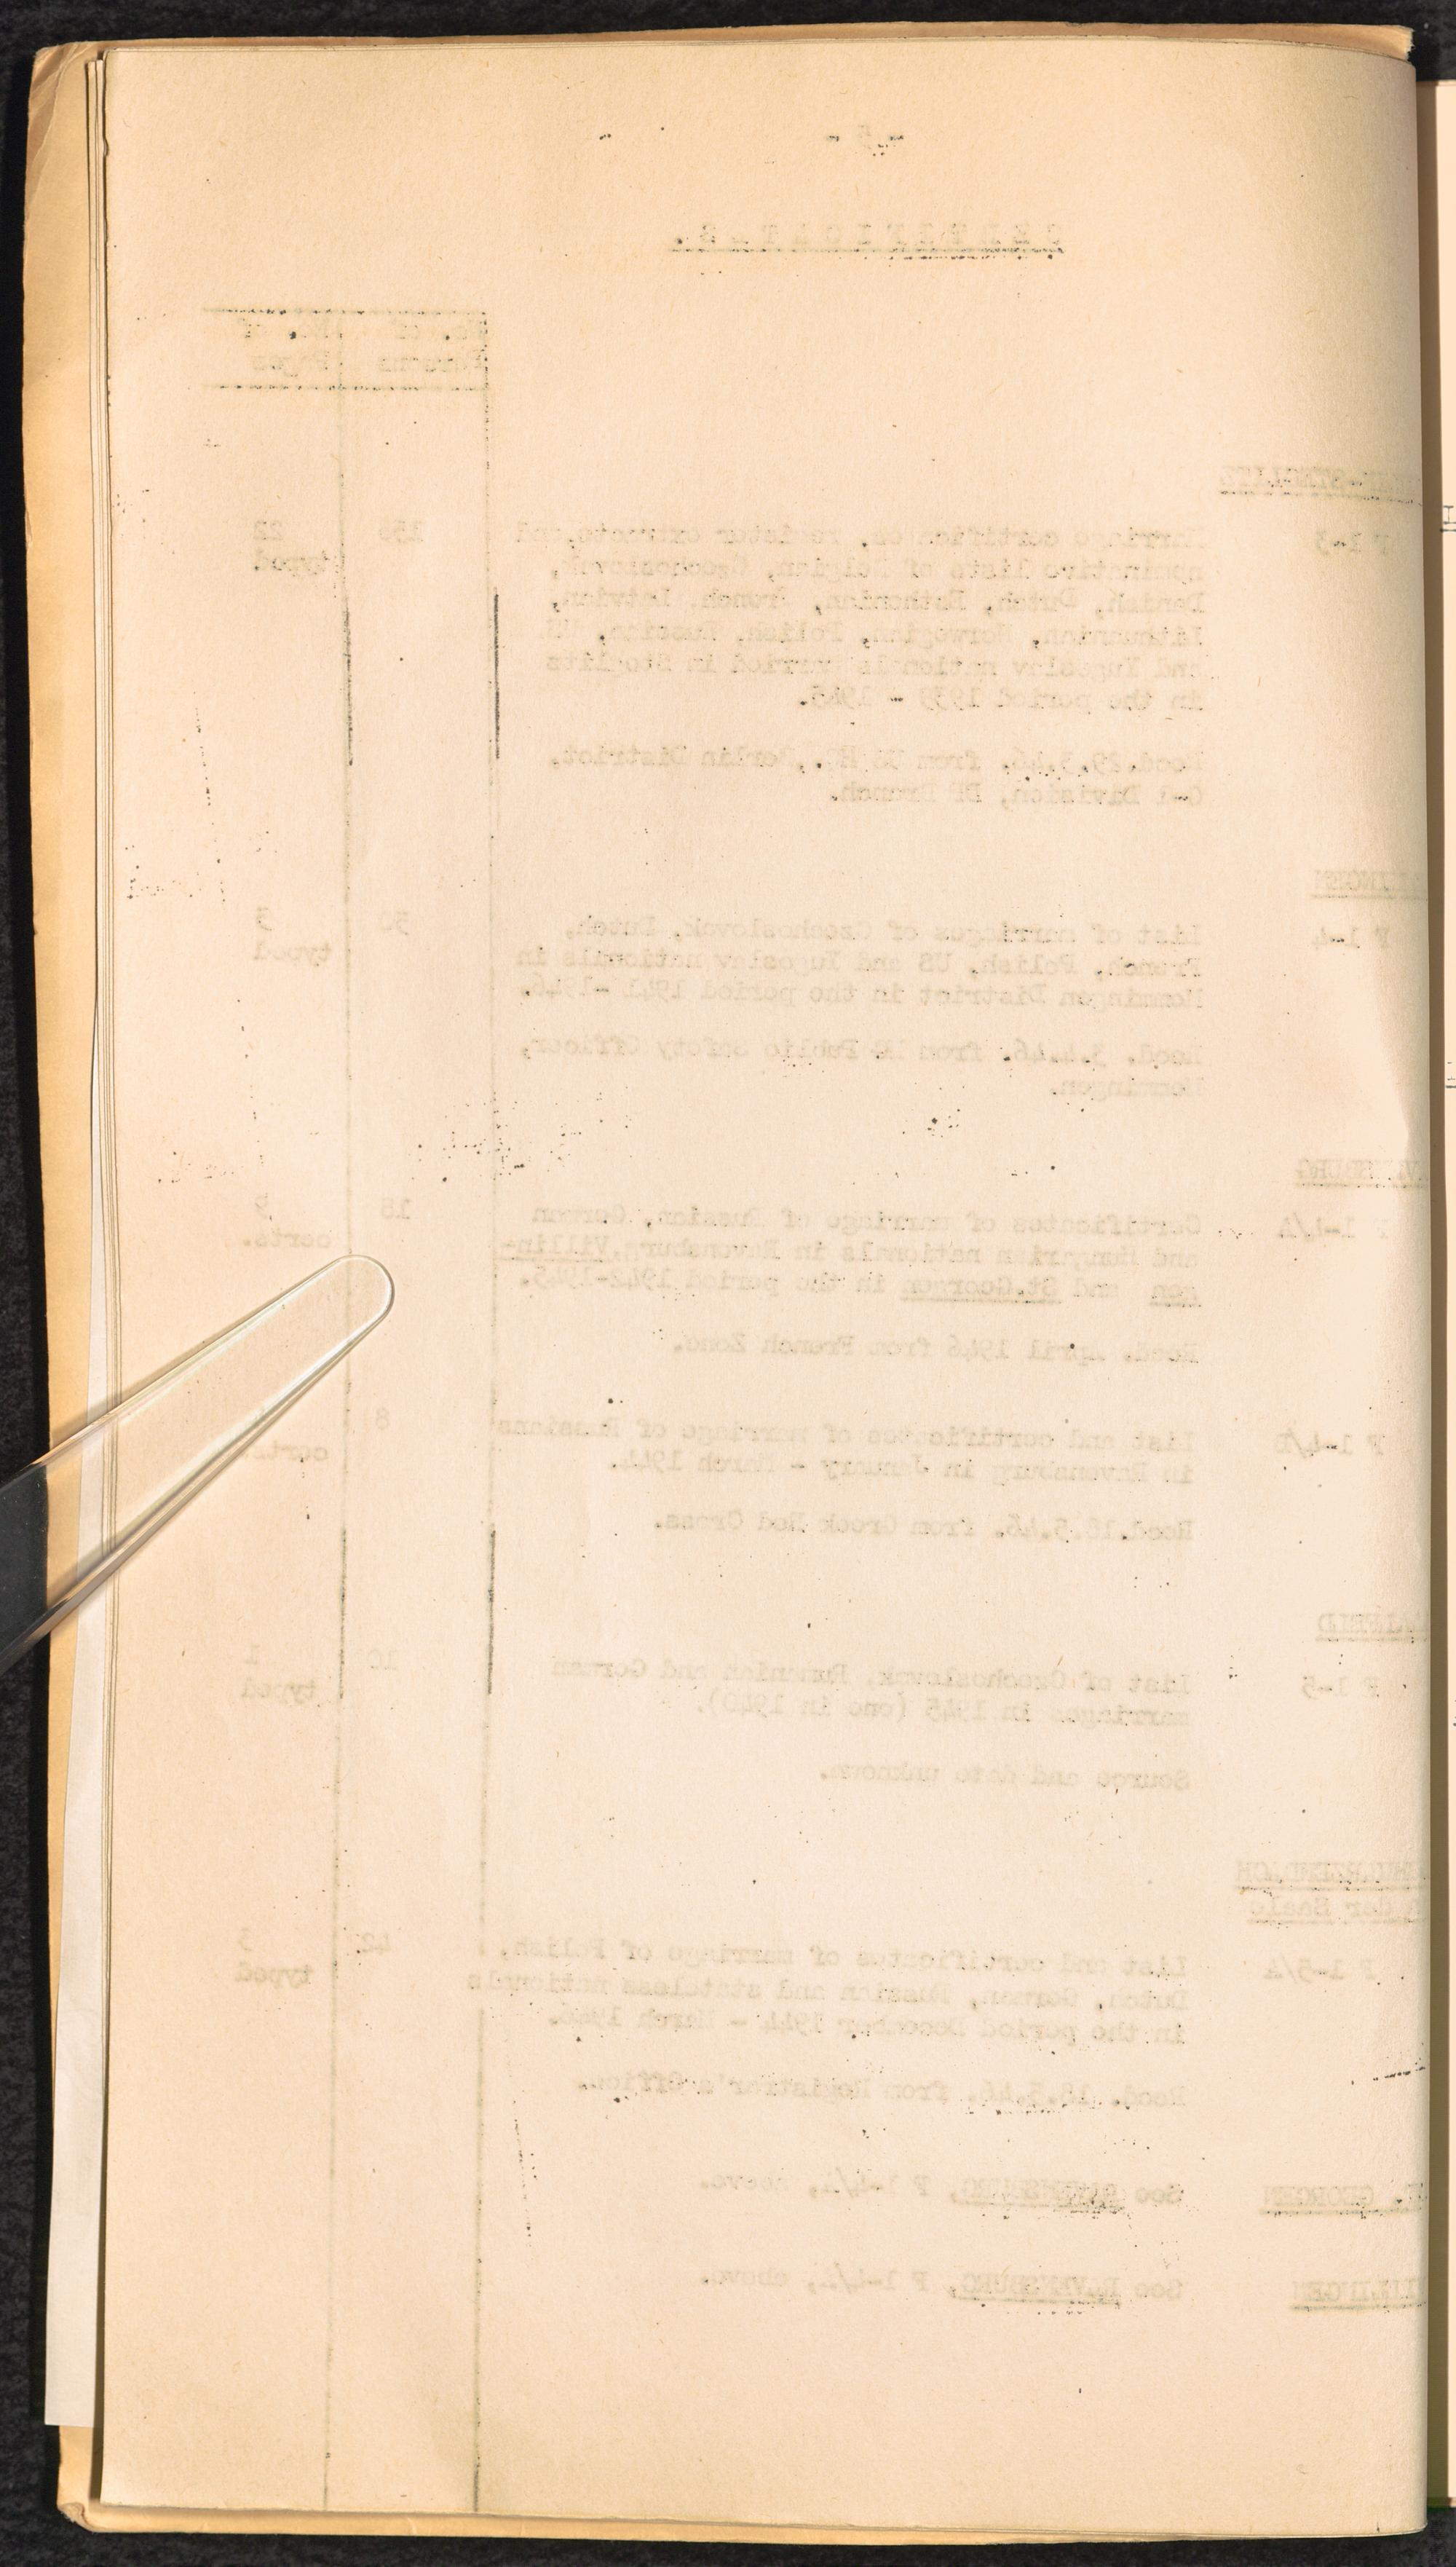 - 5 -
No. of No. of
Persons Pages
F 1-3 Marriage certificates, register extracts, and 159 22
nominative lists of Belgian, Czechoslovak, typed
Danish, Dutch, Esthonian, French, Latvian,
Lithuanian, Norwegian, Polish, Russian, US
and Yugoslav nationals married in Steglitz
in the period 1939 - 1945.
Recd.29.3.46. from US HQ., Berlin District,
G-1 Division, DP Branch.
F 1-4 List of marriages of Czechoslovak, Dutch, 50 3
French, Polish, US and Yugoslav nationals in typed
Memmingen District in the period 1941 -1946.
Recd. 3.4.46. from Public Safety Officer,
Memmingen.
F 1-4/A Certificates of marriage of Russian, German 18 9
and Hungarian nationals in Ravensburg, Villin- certs.
gen and St.Georgen in the period 1942-1945.
Recd. April 1946 from French Zone.
F 1-4/B List and certificates of marriage of Russians 8
in Ravensburg in January - March 1944.
Recd.18.5.46. from Greek Red Cross.
F 1-5 List of Czechoslovak, Rumanian and German 10 1
marriages in 1945 (one in 1940). typed
Source and date unknown.
der Saale
F 1-5/A List and certificates of marriage of Polish, 42 3
Dutch, German, Russian and stateless nationals typed
in the period December 1944 - March 1946.
Recd. 18.5.46. from Registrar's Office.
GEORGEN See RAVENSBURG, F 1-4/A, above.
See RAVENSBURG, F 1-4/A, above.